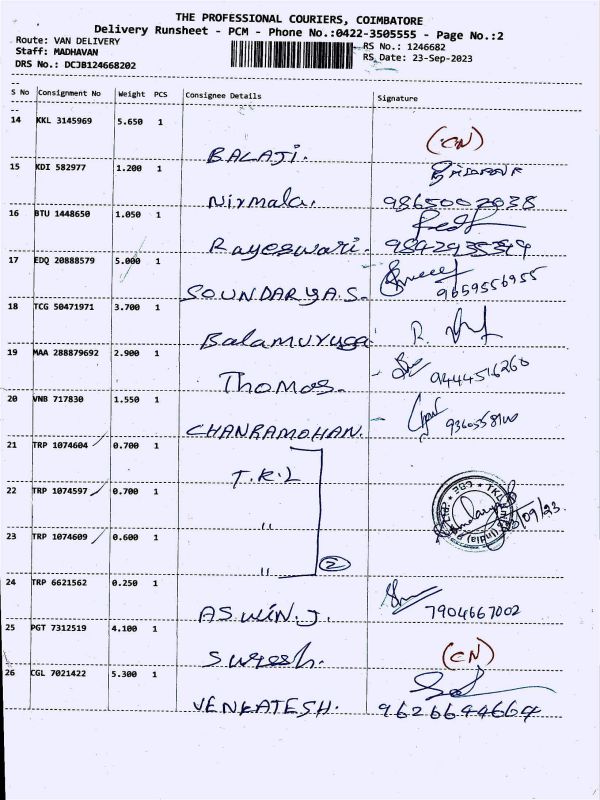 THE PROFESSIONAL COURIERS, COIMBATORE
Delivery Runsheet - PCM - Phone No.:0422-3505555 - Page No.:2
Route: VAN DELIVERY
Staff: MADHAVAN
DRS No.: DCJB124668202
RS No.: 1246682
RS Date: 23-Sep-2023
S No Consignment No Weight PCS Consignee Details Signature
14 KKL 3145969 5.650 1
BALAJI. (CN)
15 KDI 582977 1.200 1
Nirmala. 9865002038
16 BTU 1448650 1.050 1
Rayeswari.
17 EDQ 20888579 5.000 1
SOUNDARYA.S. 9659556955
18 TCG 50471971 3.700 1
Balamuruga R.
19 MAA 288879692 2.900 1
Thomas. 9444516260
20 VNB 717830 1.550 1
CHANRAMOHAN.
21 TRP 1074604 0.700 1
T.K.L
22 TRP 1074597 0.700 1
"
23 TRP 1074609 0.600 1
" 2
24 TRP 6621562 0.250 1
ASWIN.J. 7904667002
25 PGT 7312519 4.100 1
Suresh. (CN)
26 CGL 7021422 5.300 1
VENKATESH. 9626644664